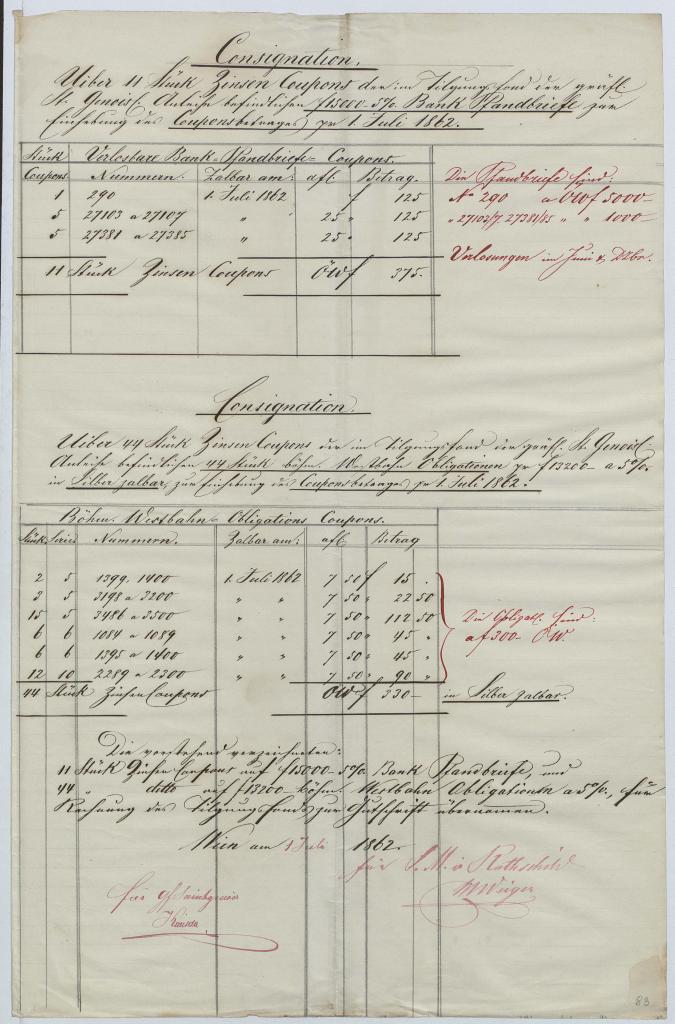 Consignation.
Uiber 11 Stück Zinsen Coupons der im Tilgungsfond der gräfl.
St. Genois'. Anleihe befindlichen f 15000 5% Bank Pfandbriefe zur
Einhebung des Couponsbetrages pr 1. Juli 1862.
Stück Verlosbare Bank-Pfandbriefe-Coupons.
Coupons Nummern. Zalbar am: afl Betrag. Die Pfandbriefe sind:
1 290 1. Juli 1862 f 125 No 290 a ÖWf 5000-
5 27103 a 27107 " " 25 " 125 " 27102/7. 27381/85 " " 1000-
5 27381 a 27385 " 25 " 125
Verlosungen im Juni & Dzbr.
11 Stück Zinsen Coupons ÖWf 375.
Consignation.
Uiber 44 Stück Zinsen Coupons der im Tilgungsfond der gräfl. St. Genois'.
Anleihe befindlichen 44 Stück böhm. Westbahn Obligationen pr f 13200- a 5%.
in Silber zalbar, zur Einhebung des Couponsbetrages pr 1. Juli 1862.
Böhm. Westbahn-Obligations Coupons.
Stück Serie Nummern. Zalbar am: afl Betrag
2 5 1399, 1400 1. Juli 1862 7 50 f 15 .
3 5 3198 a 3200 " " 7 50 " 22 50
15 5 3486 a 3500 " " 7 50 " 112 50 Die Obligat. sind:
6 6 1084 a 1089 " " 7 50 " 45 " a f 300- ÖW.
6 6 1395 a 1400 " " 7 50 " 45 "
12 10 2289 a 2300 " " 7 50 " 90 "
44 Stück Zinsen Coupons ÖW f 330- in Silber zalbar.
Die vorstehend verzeichneten:
11 Stück Zinsen Coupons auf f 15000- 5% Bank Pfandbriefe, und
44 " ditto auf f 13200 böhm. Westbahn Obligationen a 5%, für
Rechnung des Tilgungsfonds zur Gutschrift übernomen.
Wien am 1 Juli 1862.
für S. M. v Rothschild
für
83